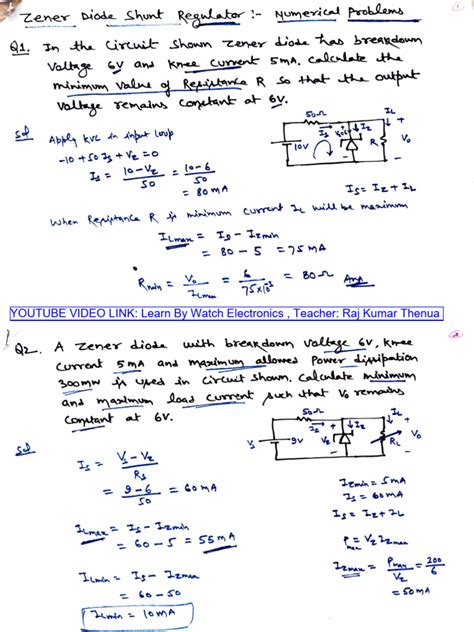 Zener Diode Shunt Regulator :- Numerical Problems
Q1. In the Circuit Shown Zener diode has breakdown
Voltage 6V and Knee current 5mA. Calculate the
minimum value of Resistance R so that the output
voltage remains Constant at 6V.
Sol Apply KVL in input loop
-10 + 50 Is + Vz = 0
Is = 10-Vz / 50 = 10-6 / 50
= 80 mA
50Ω
Is
Iz
IL
10V
R
Vo
Is = Iz + IL
When Resistance R is minimum current IL will be maximum
ILmax = Is - Izmin
= 80 - 5 = 75 mA
Rmin = Vo / ILmax = 6 / 75×10-3 = 80Ω Ans
YOUTUBE VIDEO LINK: Learn By Watch Electronics , Teacher: Raj Kumar Thenua
Q2. A Zener diode with breakdown voltage 6V, Knee
Current 5mA and maximum allowed Power dissipation
300mW is used in circuit shown. Calculate minimum
and maximum load current such that Vo remains
Constant at 6V.
50Ω
Is
Iz
IL
Vs
9V
RL
Vo
Sol
Is = Vs-Vz / Rs
= 9-6 / 50 = 60 mA
Izmin = 5mA
Is = 60mA
Is = Iz + IL
ILmax = Is - Izmin
= 60 - 5 = 55 mA
Pmax = Vz Izmax
Izmax = Pmax / Vz = 300 / 6
= 50mA
ILmin = Is - Izmax
= 60 - 50
ILmin = 10mA